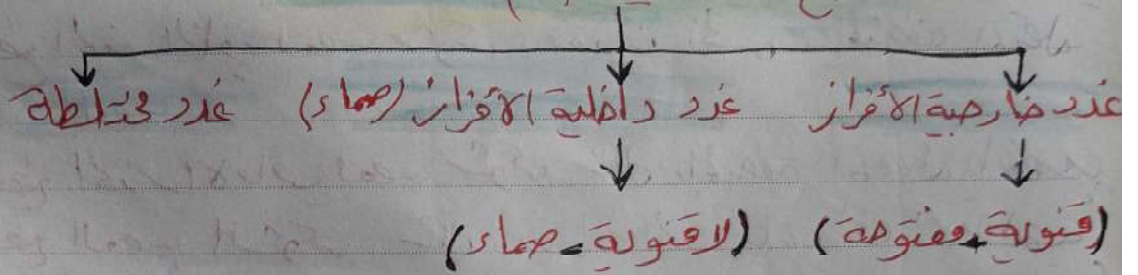 غدد خارجية الأفراز غدد داخلية الأفراز (صماء) غدد مختلطة
(قنوية + مفتوحة) (لاقنوية = صماء)